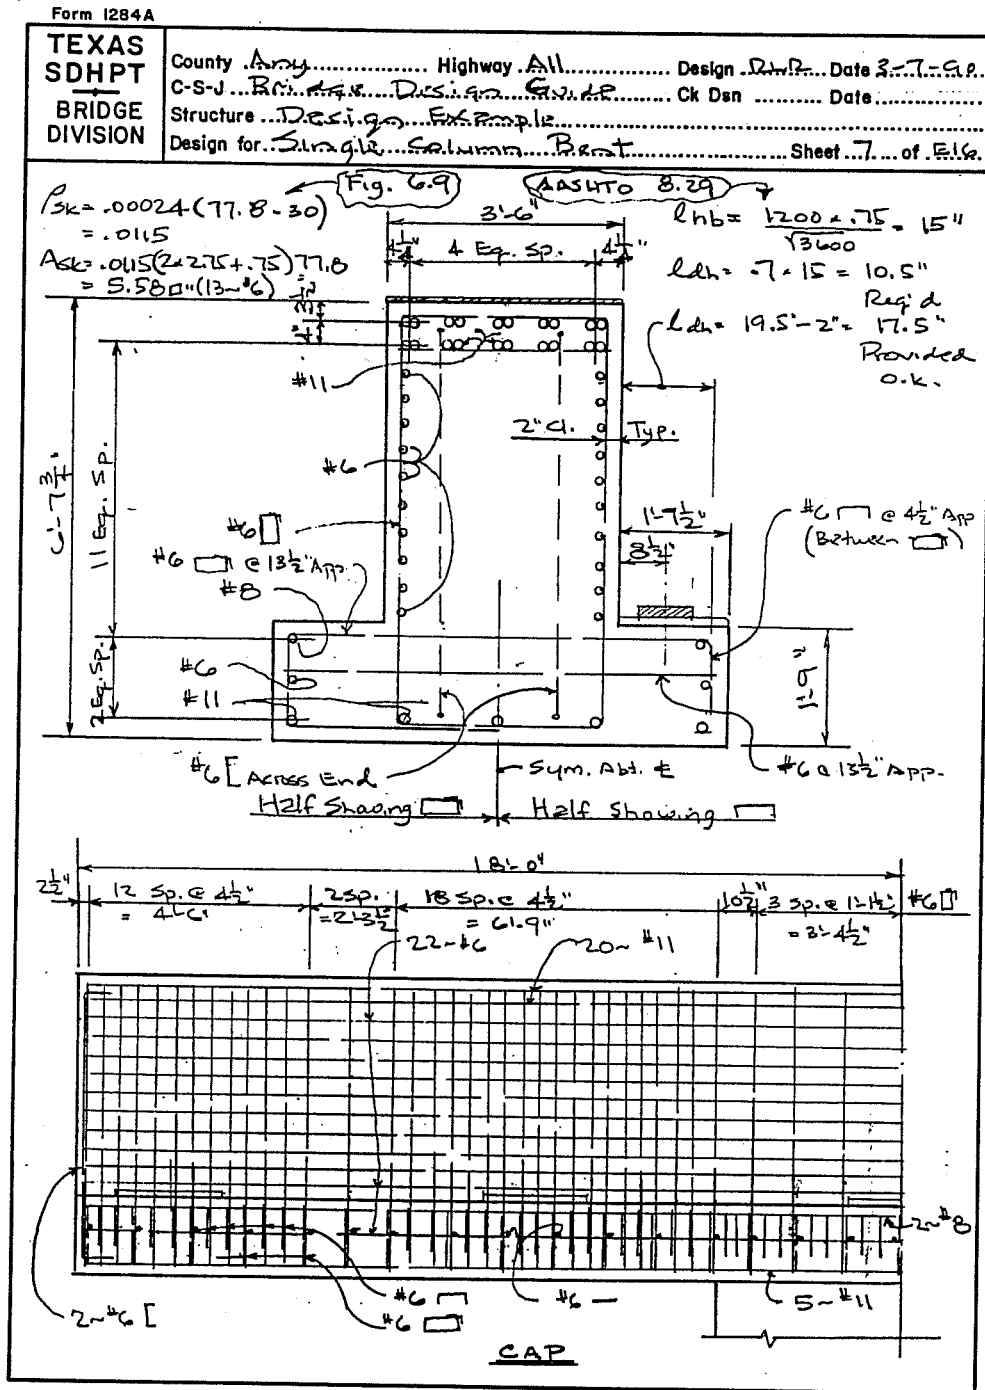 Form 1284A
TEXAS
SDHPT
BRIDGE
DIVISION
County Any Highway All Design RLR Date 3-7-90
C-S-J Bridge Design Guide Ck Dsn Date
Structure Design Example
Design for Single Column Bent Sheet 7 of E16
Fig. 6.9
AASHTO 8.29
ρsk = .00024(77.8-30)
= .0115
Ask = .0115(2×2.75+.75)77.8
= 5.58□"(13~#6)
3'-6"
4 1/4" 4 Eq. Sp. 4 1/4"
lhb = 1200 × .75 / √3600 = 15"
ldh = .7 × 15 = 10.5"
Req'd
ldh = 19.5"-2" = 17.5"
Provided
O.K.
#11
2" Cl. Typ.
6'-7 3/4"
11 Eq. Sp.
#6
1'-7 1/2"
8 1/2"
#6 @ 4 1/2" App
(Between )
#6
#6 @ 13 1/2" App.
#8
2 Eq. Sp.
#6
#11
1'-9"
#6 [ Across End
Sym. Abt. ℄
#6 @ 13 1/2" App.
Half Showing
Half Showing
18'-0"
2 1/2" 12 Sp. @ 4 1/2" 2 Sp. 18 Sp. @ 4 1/2" 10 1/2" 3 Sp. @ 1'-1 1/2" #6
= 4'-6" = 2'-3 1/2" = 6'-9" = 3'-4 1/2"
22~#6 20~#11
2~#8
2~#6 [
#6
#6
#6 —
5~#11
CAP